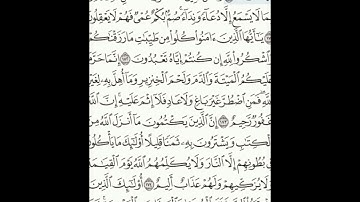 بِمَا لَا يَسْمَعُ إِلَّا دُعَآءً وَنِدَآءً صُمٌّۢ بُكْمٌ عُمْىٌ فَهُمْ لَا يَعْقِلُونَ
يَٰٓأَيُّهَا ٱلَّذِينَ ءَامَنُوا۟ كُلُوا۟ مِن طَيِّبَٰتِ مَا رَزَقْنَٰكُمْ
وَٱشْكُرُوا۟ لِلَّهِ إِن كُنتُمْ إِيَّاهُ تَعْبُدُونَ ١٧٢ إِنَّمَا حَرَّمَ
عَلَيْكُمُ ٱلْمَيْتَةَ وَٱلدَّمَ وَلَحْمَ ٱلْخِنزِيرِ وَمَآ أُهِلَّ بِهِۦ لِغَيْرِ
ٱللَّهِ فَمَنِ ٱضْطُرَّ غَيْرَ بَاغٍ وَلَا عَادٍ فَلَآ إِثْمَ عَلَيْهِ إِنَّ ٱللَّهَ
غَفُورٌ رَّحِيمٌ ١٧٣ إِنَّ ٱلَّذِينَ يَكْتُمُونَ مَآ أَنزَلَ ٱللَّهُ مِنَ
ٱلْكِتَٰبِ وَيَشْتَرُونَ بِهِۦ ثَمَنًا قَلِيلًا أُو۟لَٰٓئِكَ مَا يَأْكُلُونَ
فِى بُطُونِهِمْ إِلَّا ٱلنَّارَ وَلَا يُكَلِّمُهُمُ ٱللَّهُ يَوْمَ ٱلْقِيَٰمَةِ
وَلَا يُزَكِّيهِمْ وَلَهُمْ عَذَابٌ أَلِيمٌ ١٧٤ أُو۟لَٰٓئِكَ ٱلَّذِينَ